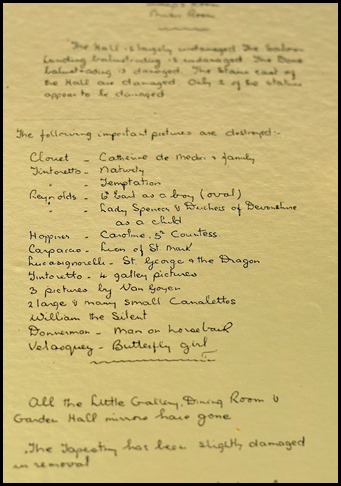 Room
The Hall is largely undamaged. The Saloon
Landing balustrading is undamaged. The Dome
balustrading is damaged. The Stairs east of
the Hall are damaged. Only 2 of the statues
appear to be damaged
The following important pictures are destroyed:-
Clouet - Catherine de Medici & family
Tintoretto - Nativity
" - Temptation
Reynolds - 6th Earl as a boy (oval)
" - Lady Spencer & Duchess of Devonshire
as a child
Hoppner - Caroline, 5th Countess.
Carpaccio - Lion of St. Mark
Lucasignorelli - St. George & the Dragon
Tintoretto - 4 gallery pictures
3 pictures by Van Goyen
2 large & many small Canalettos
William the Silent
Donnerman - Man on horseback
Velasquez - Butterfly girl
All the Little Gallery, Dining Room &
Garden Hall mirrors have gone
The Tapestry has been slightly damaged
in removal